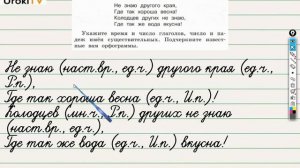 UROKI TV
Не знаю другого края,
Где так хороша весна!
Колодцев других не знаю,
Где так же вода вкусна!
Укажите время и число глаголов, число и па-
деж имён существительных. Подчеркните извест-
ные вам орфограммы.
Не знаю (наст.вр., ед.ч.) другого края (ед.ч.,
Р.п.),
Где так хороша весна (ед.ч., И.п.)!
Колодцев (мн.ч., Р.п.) других не знаю
(наст.вр., ед.ч.),
Где так же вода (ед.ч., И.п.) вкусна!